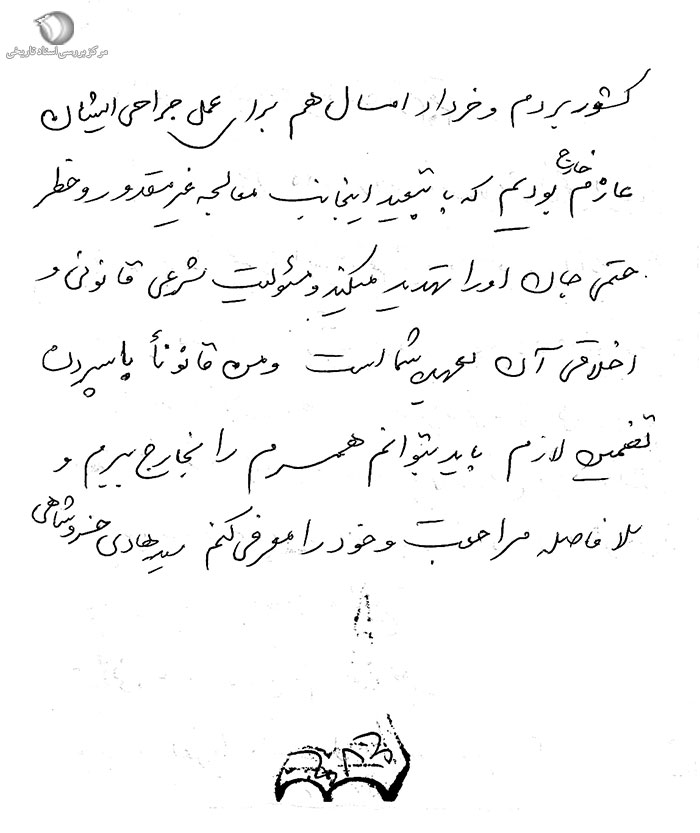 مرکز بررسی اسناد تاریخی
کشور بردم و خرداد امسال هم برای عمل جراحی ایشان
عازم خارج بودیم که با تبعید اینجانب معالجه غیرمقدور و خطر
حتمی جان او را تهدید میکند و مسئولیت شرعی قانونی و
اخلاقی آن بعهده شما است و من قانوناً با سپردن
تضمین لازم باید بتوانم همسرم را بخارج ببرم و
بلافاصله مراجعت و خود را معرفی کنم سید هادی خسروشاهی